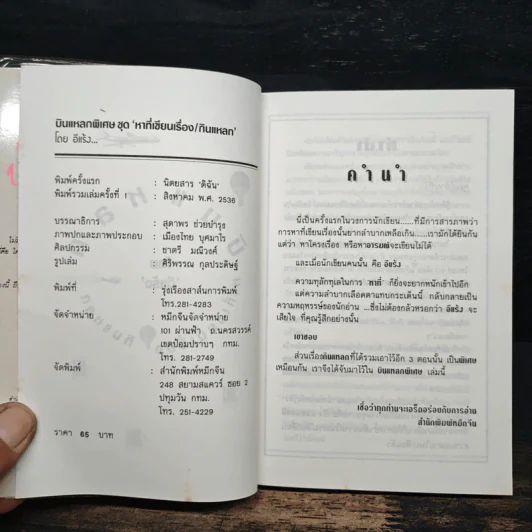 บินแหลกพิเศษ ชุด 'หาที่เขียนเรื่อง/กินแหลก'
โดย อีแร้ง...
พิมพ์ครั้งแรก : นิตยสาร 'ดิฉัน'
พิมพ์รวมเล่มครั้งที่ 1 : สิงหาคม พ.ศ. 2536
บรรณาธิการ : สุดาพร ช่วยบำรุง
ภาพปกและภาพประกอบ : เมืองไทย บุศมาโร
ศิลปกรรม : ชาตรี มณีวงค์
รูปเล่ม : ศิริพรรณ กุลประดิษฐ์
พิมพ์ที่ : รุ่งเรืองสาส์นการพิมพ์
โทร.281-4283
จัดจำหน่าย : หมึกจีนจัดจำหน่าย
101 ผ่านฟ้า ถ.นครสวรรค์
เขตป้อมปราบฯ กทม.
โทร. 281-2749
จัดพิมพ์ : สำนักพิมพ์หมึกจีน
248 สยามสแควร์ ซอย 2
ปทุมวัน กทม.
โทร. 251-4229
ราคา 65 บาท
คำนำ
นี่เป็นครั้งแรกในวงการนักเขียน......ที่มีการสารภาพว่า
การหาที่เขียนเรื่องนั้นยากลำบากเหลือเกิน......เรามักได้ยินกัน
แต่ว่า หาโครงเรื่อง หรือหาอารมณ์จะเขียนไม่ได้
และเมื่อนักเขียนคนนั้น คือ อีแร้ง
ความทุลักทุเลในการ 'หาที่' ก็ยิ่งจะยากหนักเข้าไปอีก
แต่ความลำบากเลือดตาแทบกระเด็นนี้ กลับกลายเป็น
ความหฤหรรษ์ของนักอ่าน ...ซึ่งไม่ต้องกลัวหรอกว่า อีแร้ง จะ
เสียใจ ที่คุณรู้สึกอย่างนั้น
เขาชอบ
ส่วนเรื่องกินแหลกที่ได้รวมเอาไว้อีก 3 ตอนนั้น เป็นพิเศษ
เหมือนกัน เราจึงได้จับมาไว้ใน บินแหลกพิเศษ เล่มนี้
เชื่อว่าทุกท่านจะเอร็ดอร่อยกับการอ่าน
สำนักพิมพ์หมึกจีน